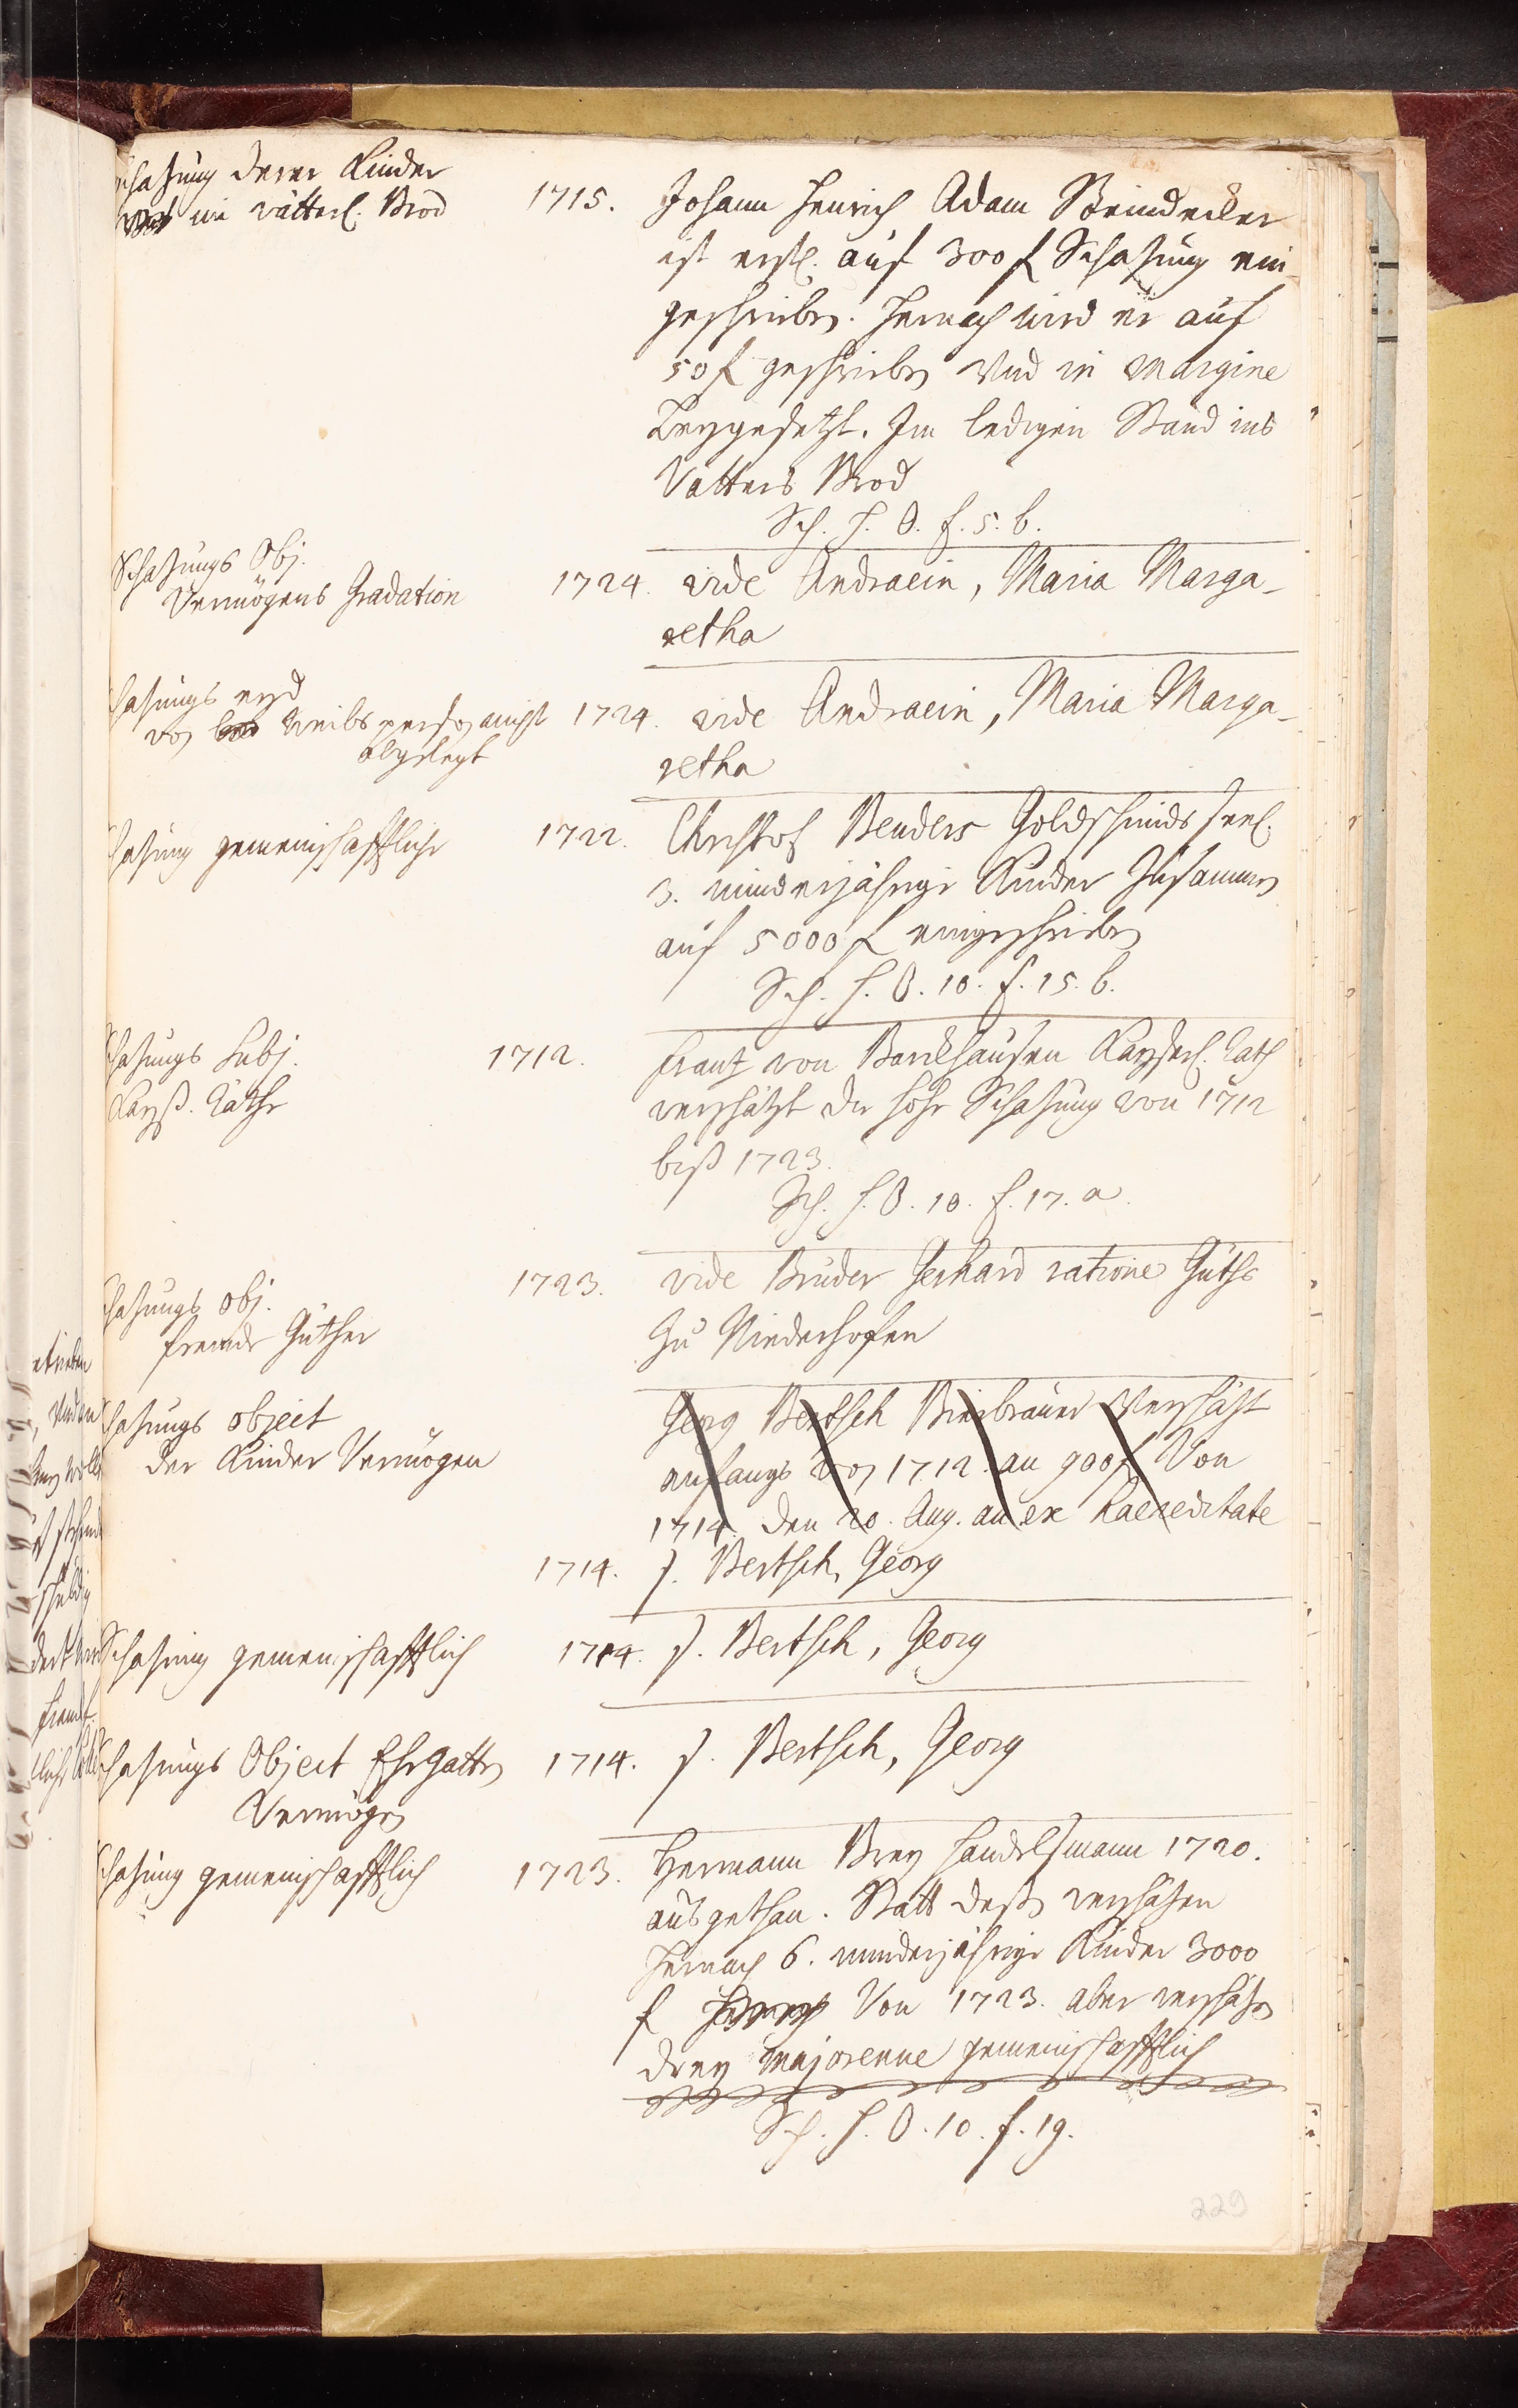 Schatzung derer Kinder
in vätterl. Brod
1715. Johann Henrich Adam Steindecker
ist erstl. auf 300 f Schatzung ein-
geschrieben. Hernach wird er auf
50 f geschrieben und in Margine
beygesetzt. Im ledigen Stand ins
Vatters Brod
Sch. h. B. f. 5. b.
Schatzungs Obj.
Vermögens Gradation
1724. vide Andraein, Maria Marga-
retha
Schatzungs eyd
von Weibs person nicht
abgelegt
1724. vide Andraein, Maria Marga-
retha
Schatzung gemeinschafftliche
1722. Christof Benders Goldschmids seel.
3. minderjährige Kinder zusammen
auf 5000 f eingeschrieben
Sch. h. B. 10. f. 15. b.
Schatzungs Subj.
Kayß. Räthe
1712. Frantz von Barckhausen Kayserl. Rath
verschätzt die höhe Schatzung von 1712
biß 1723.
Sch. h. B. 10. f. 17. a.
Schatzungs obj.
fremde Güther
1723. vide Bruder Gerhard ratione Guths
zu Niederhofen
Schatzungs object
der Kinder Vermögen
Georg Bertsch Bierbrauer verschätzt
anfangs von 1712. an 900 f. Von
1714. den 20. Aug. an ex haereditate
1714. s. Bertsch, Georg
Schatzung gemeinschafftlich
1714. s. Bertsch, Georg
Schatzungs Object Ehegatten
Vermögen
1714. s. Bertsch, Georg
Schatzung gemeinschafftlich
1723. Hermann Brey Handelsmann 1720.
ausgethan. Statt dessen verschätzen
hernach 6. minderjährige Kinder 3000
f Von 1723. aber verschätzen
drey majorenne gemeinschafftlich
Sch. h. B. 10. f. 19.
229